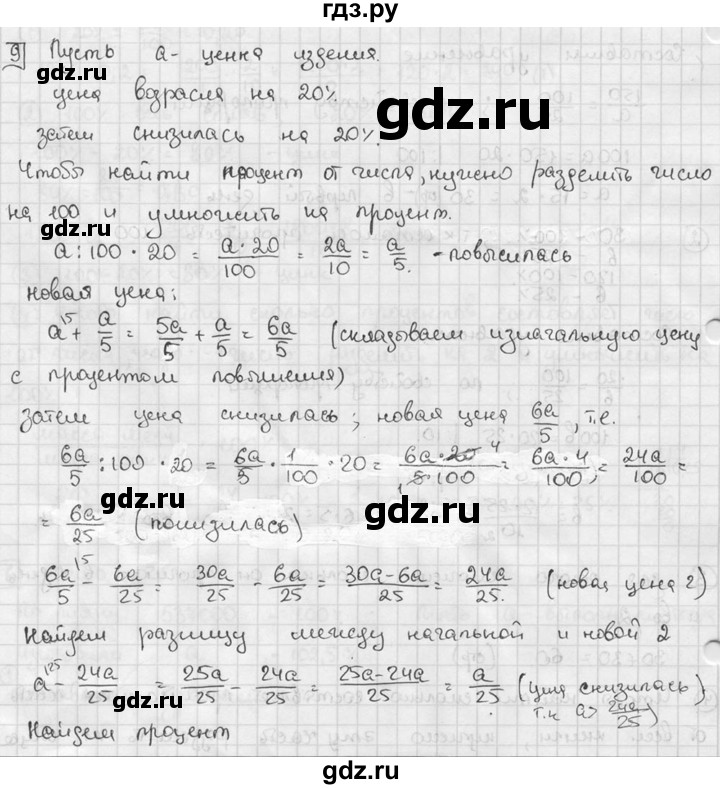 гдз.ру
9] Пусть a - ценна изделия.
цена возрасла на 20%.
затем снизилась на 20%.
Чтобы найти процент от числа, нужно разделить число
на 100 и умножить на процент.
a : 100 · 20 = a·20/100 = 2a/10 = a/5 - повысилась
новая цена:
a + a/5 = 5a/5 + a/5 = 6a/5 (складываем изначальную цену
с процентом повышения)
затем цена снизилась; новая цена 6a/5, т.е.
6a/5 : 100 · 20 = 6a/5 · 1/100 · 20 = 6a·20/5·100 = 6a·4/100 = 24a/100 =
= 6a/25 (понизилась)
6a/5 - 6a/25 = 30a/25 - 6a/25 = 30a-6a/25 = 24a/25. (новая цена 2)
Найдем разницу между начальной и новой 2
a - 24a/25 = 25a/25 - 24a/25 = 25a-24a/25 = a/25 (цена снизилась
т.к a > 24a/25)
Найдем процент
gdz.ru
gdz.ru
gdz.ru
gdz.ru
gdz.ru
gdz.ru
gdz.ru
gdz.ru
gdz.ru
gdz.ru
gdz.ru
gdz.ru